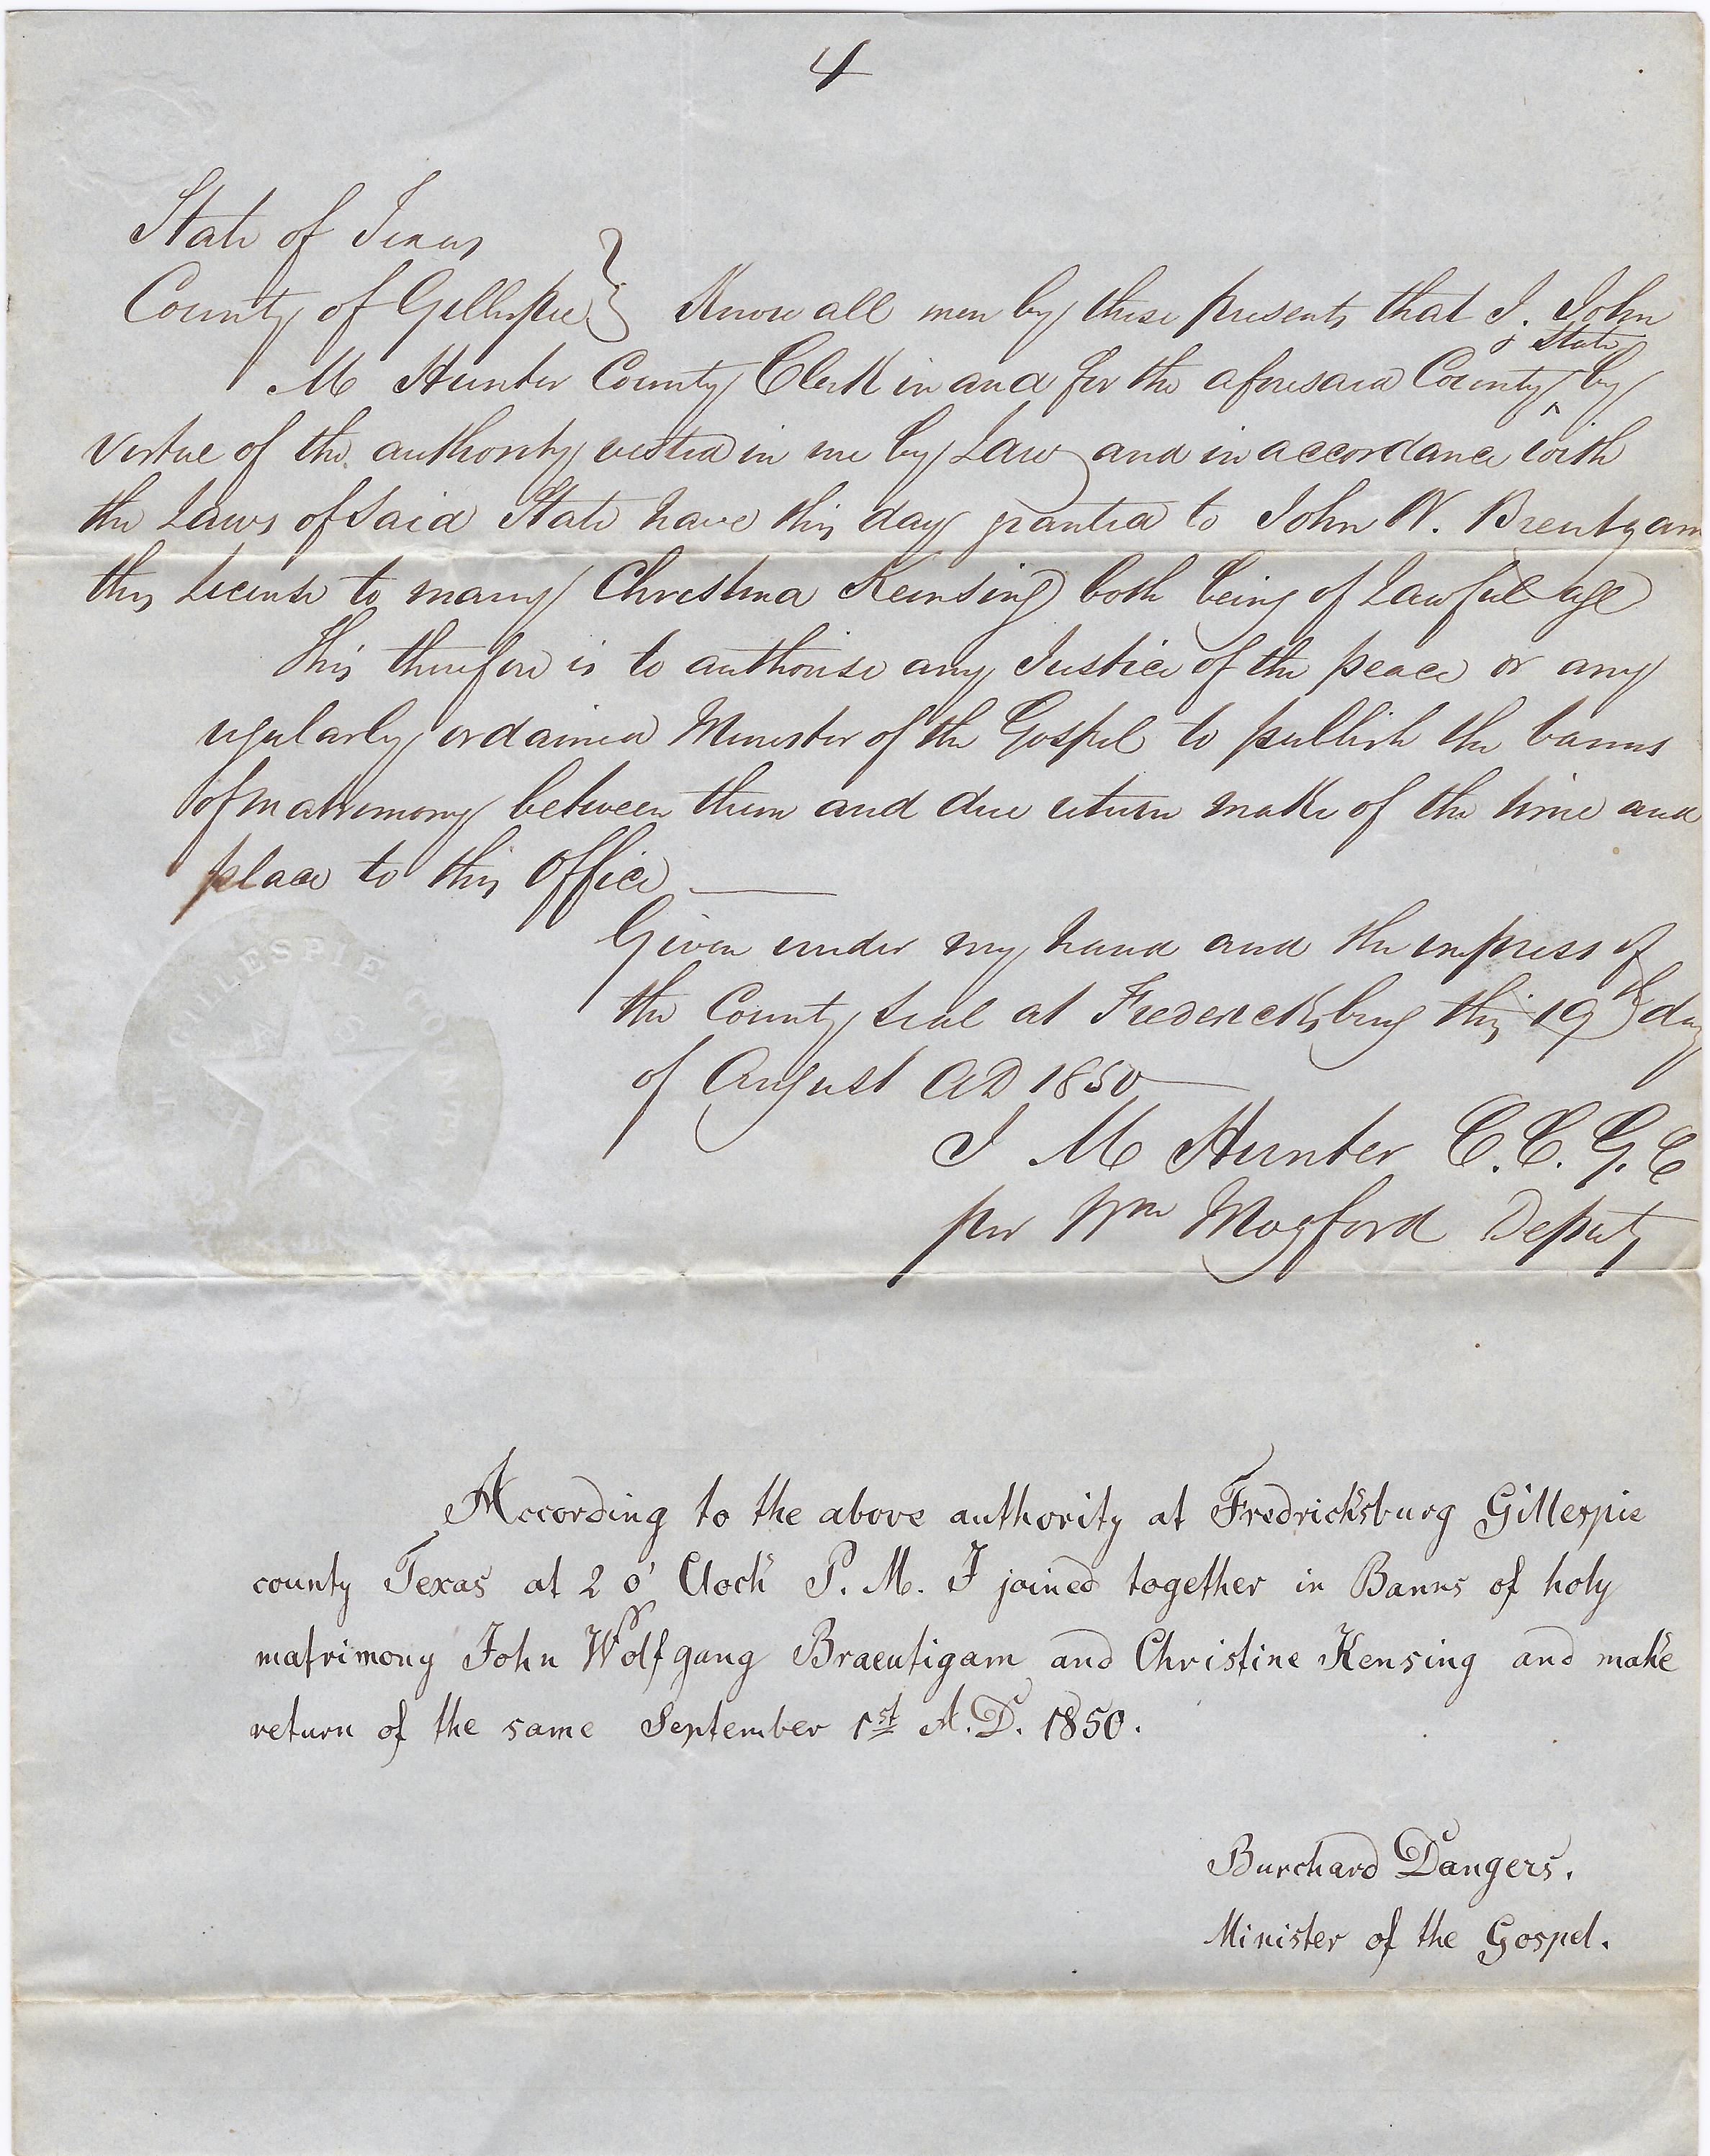 4
State of Texas
County of Gillespie } Know all men by these presents that I. John
& State
M Hunter County Clerk in and for the aforesaid County ^ by
virtue of the authority vested in me by Law and in accordance with
the Laws of Said State have this day granted to John W. Brentgam
this License to marry Christina Keinsing both being of Lawful age
This therefore is to authorise any Justice of the peace or any
regularly ordained Minister of the Gospel to publish the banns
of matrimony between them and due return make of the time and
place to this Office
Given under my hand and the impress of
the County Seal at Fredericksburg this 19th day
of August AD 1850
J M Hunter C.C.G.C
per Wm Mogford Deputy
GILLESPIE COUNTY
According to the above authority at Fredricksburg Gillespie
county Texas at 2 o' Clock P. M. I joined together in Banns of holy
matrimony John Wolfgang Braeutigam and Christine Kensing and make
return of the same September 1st A.D. 1850.
Burchard Dangers.
Minister of the Gospel.